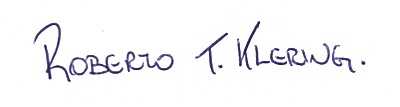 Roberto T. Klering.